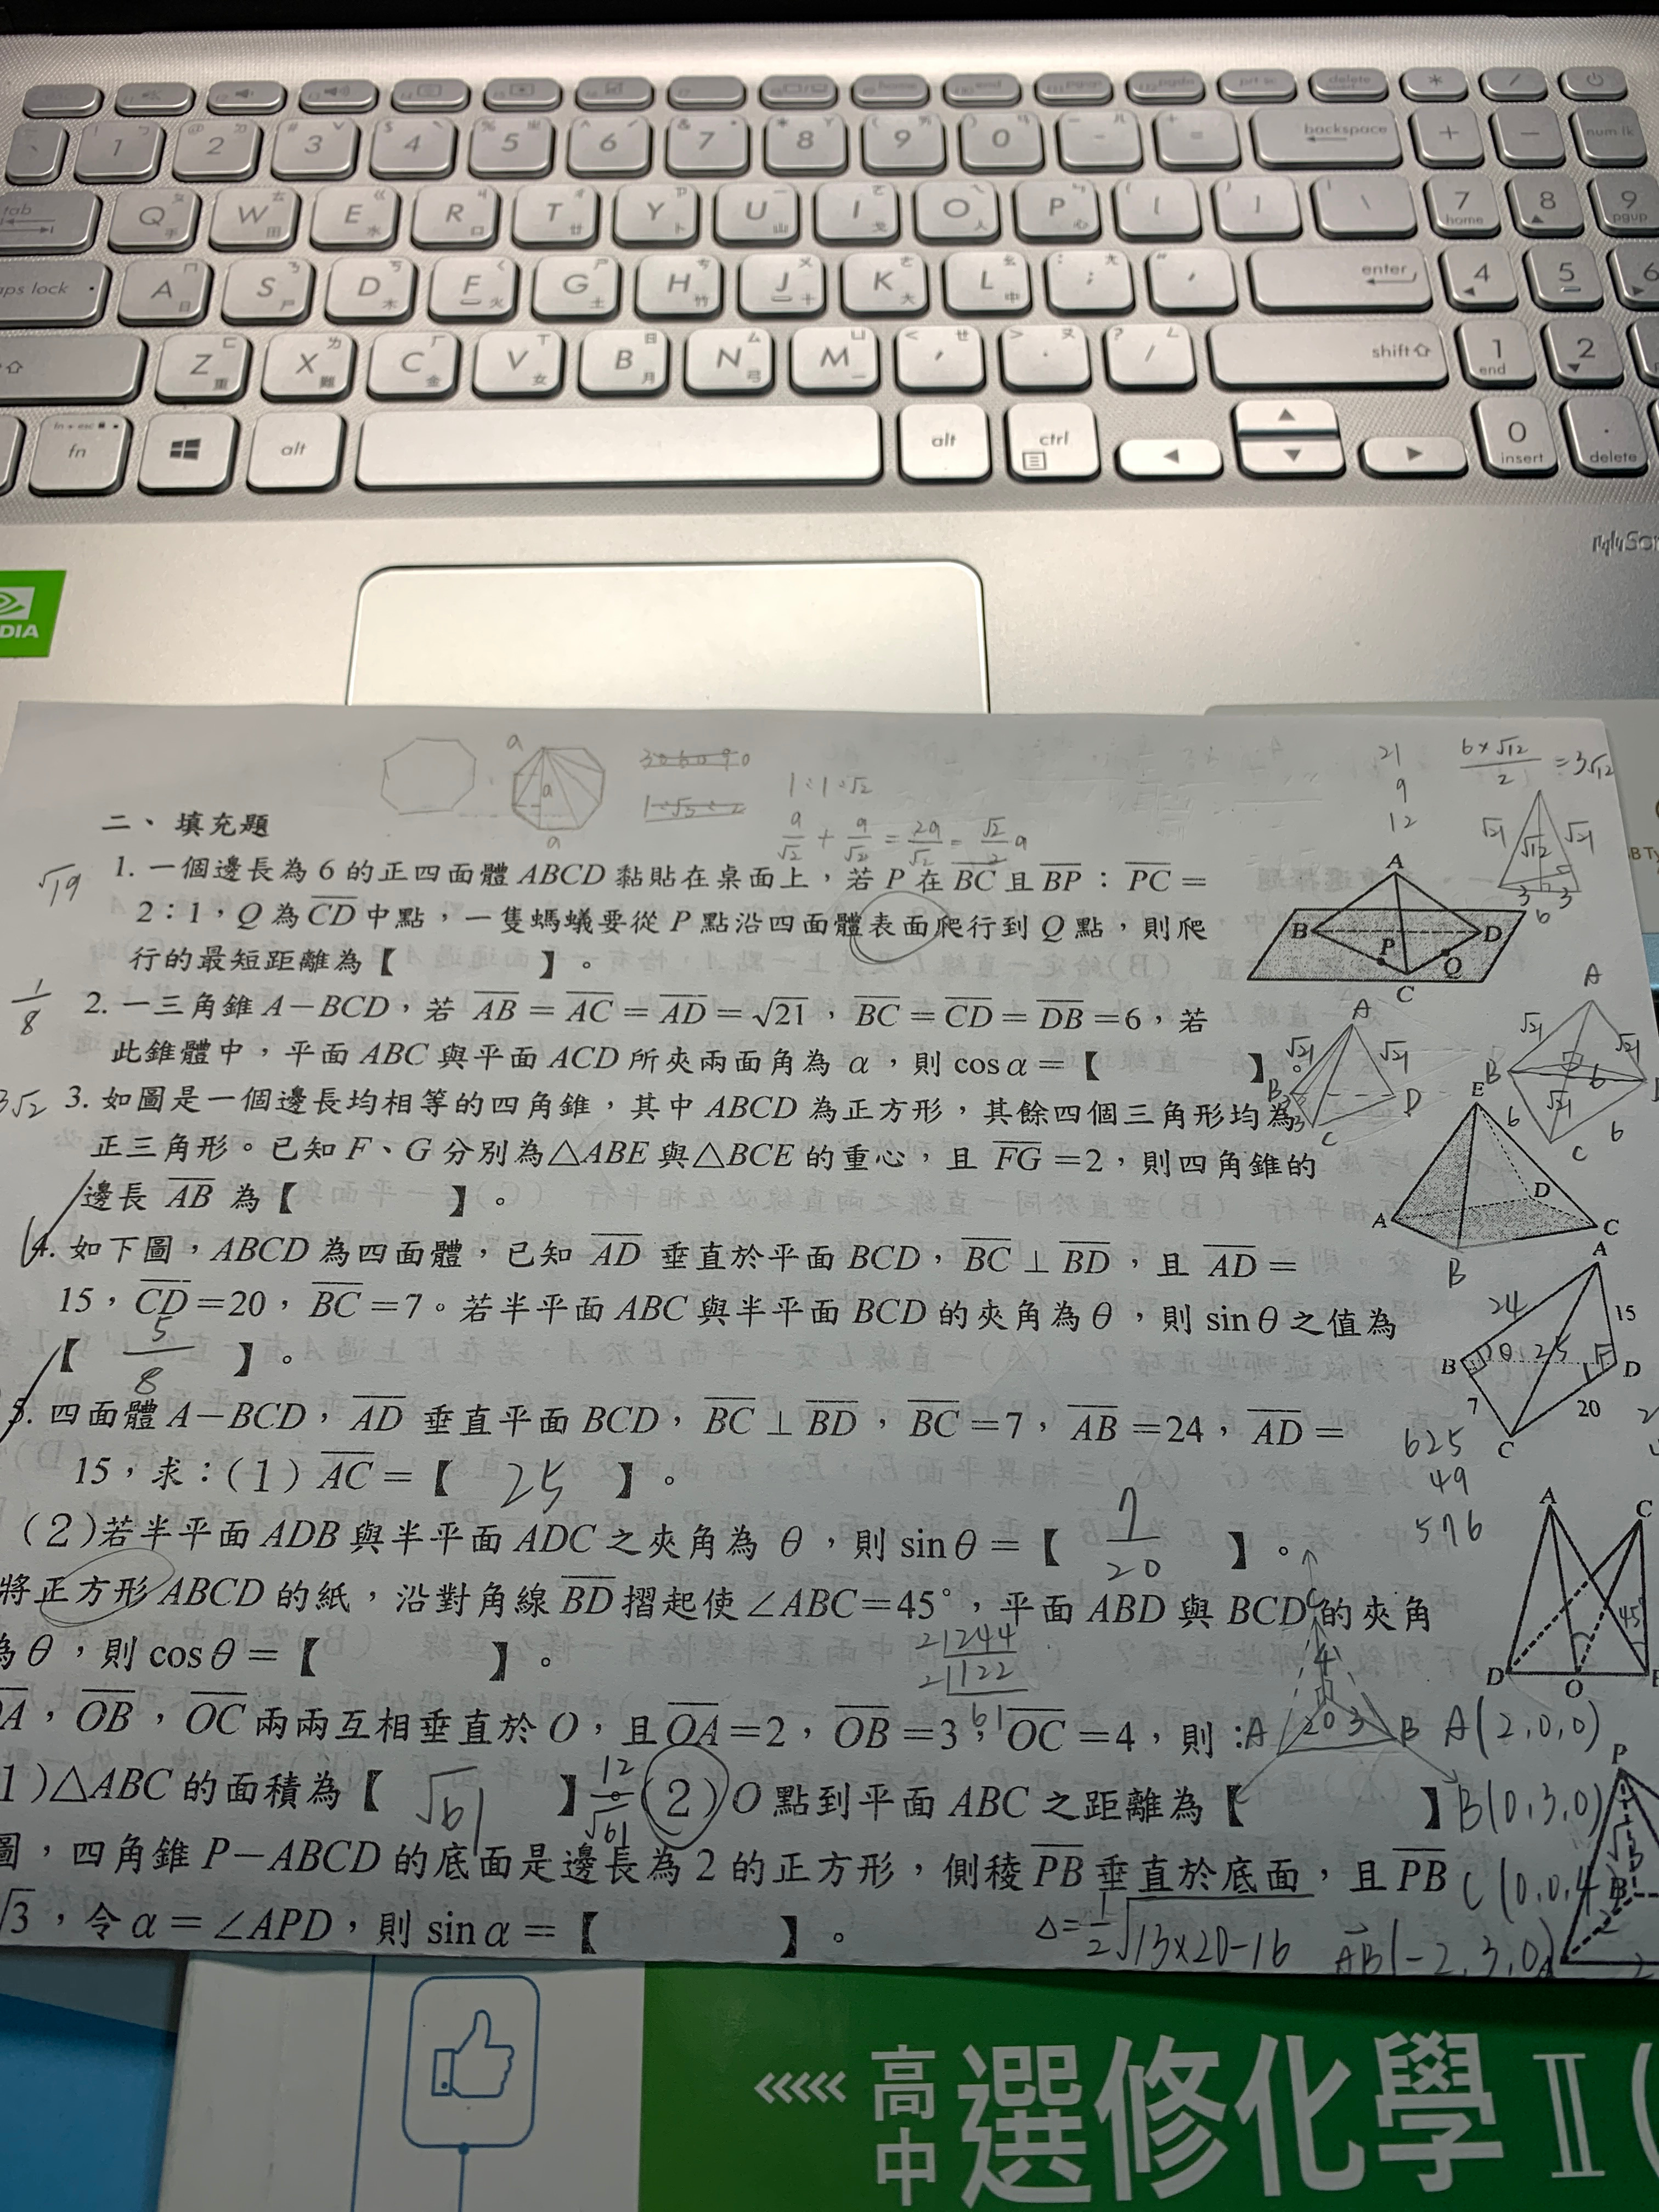 tab
Q W E R T Y U I O P
caps lock
A S D F G H J K L
enter
Z X C V B N M
shift
fn alt alt ctrl
backspace
num lk
7 home 8 9 pgup
4 5 6
1 end 2
0 insert . delete
二、填充題
√19
1. 一個邊長為 6 的正四面體 ABCD 黏貼在桌面上，若 P 在 BC 且 BP：PC＝
2：1，Q 為 CD 中點，一隻螞蟻要從 P 點沿四面體表面爬行到 Q 點，則爬
行的最短距離為【 】。
1/8
2. 一三角錐 A－BCD，若 AB＝AC＝AD＝√21，BC＝CD＝DB＝6，若
此錐體中，平面 ABC 與平面 ACD 所夾兩面角為 α，則 cosα＝【 】。
3√2
3. 如圖是一個邊長均相等的四角錐，其中 ABCD 為正方形，其餘四個三角形均為
正三角形。已知 F、G 分別為△ABE 與△BCE 的重心，且 FG＝2，則四角錐的
邊長 AB 為【 】。
4. 如下圖，ABCD 為四面體，已知 AD 垂直於平面 BCD，BC⊥BD，且 AD＝
15，CD＝20，BC＝7。若半平面 ABC 與半平面 BCD 的夾角為θ，則 sinθ之值為
【 5/8 】。
5. 四面體 A－BCD，AD 垂直平面 BCD，BC⊥BD，BC＝7，AB＝24，AD＝
15，求：(1) AC＝【 25 】。
(2)若半平面 ADB 與半平面 ADC 之夾角為 θ，則 sinθ＝【 7/20 】。
將正方形 ABCD 的紙，沿對角線 BD 摺起使∠ABC＝45°，平面 ABD 與 BCD 的夾角
為θ，則 cosθ＝【 】。
OA，OB，OC 兩兩互相垂直於 O，且 OA＝2，OB＝3，OC＝4，則：
1)△ABC 的面積為【 √61 】 12/√61 (2) O 點到平面 ABC 之距離為【 】
圖，四角錐 P－ABCD 的底面是邊長為 2 的正方形，側稜 PB 垂直於底面，且 PB
√3，令 α＝∠APD，則 sinα＝【 】。
1:1:√2
21
9
12
6×√12/2 = 3√12
625
49
576
2|244
2|122
61
A(2,0,0)
B(0,3,0)
C(0,0,4)
AB(-2,3,0)
Δ=1/2√13×20-16
<<<<< 高中 選修化學 II (